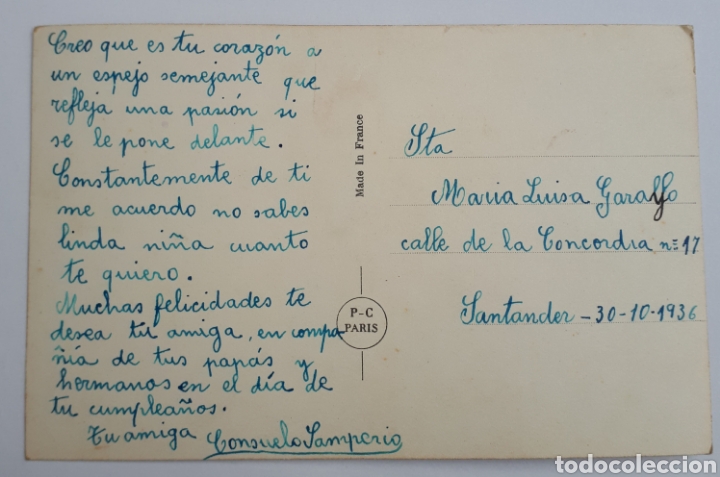 Creo que es tu corazón a
un espejo semejante que
refleja una pasión si
se le pone delante.
Constantemente de ti
me acuerdo no sabes
linda niña cuanto
te quiero.
Muchas felicidades te
desea tu amiga, en compa
ñia de tus papás y
hermanos en el día de
tu cumpleaños.
Tu amiga Consuelo Samperio
Made In France
P-C
PARIS
Sta
Maria Luisa
calle de la Concordia nº 17
Santander - 30-10-1936
todocoleccion